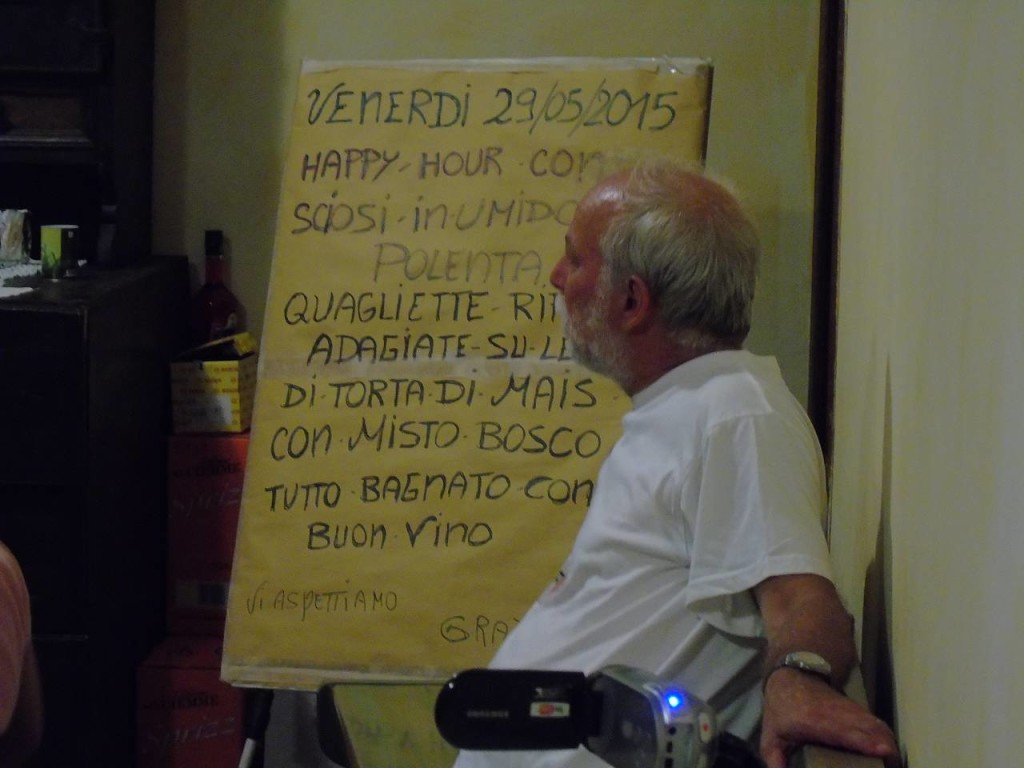 VENERDÌ 29/05/2015
HAPPY-HOUR-CON
SCIOSI-in-UMIDO
POLENTA
QUAGLIETTE-RI
ADAGIATE-SU-LE
DI-TORTA-DI-MAIS
CON-MISTO-BOSCO
TUTTO-BAGNATO-CON
BUON-VINO
VI ASPETTIAMO
GRA